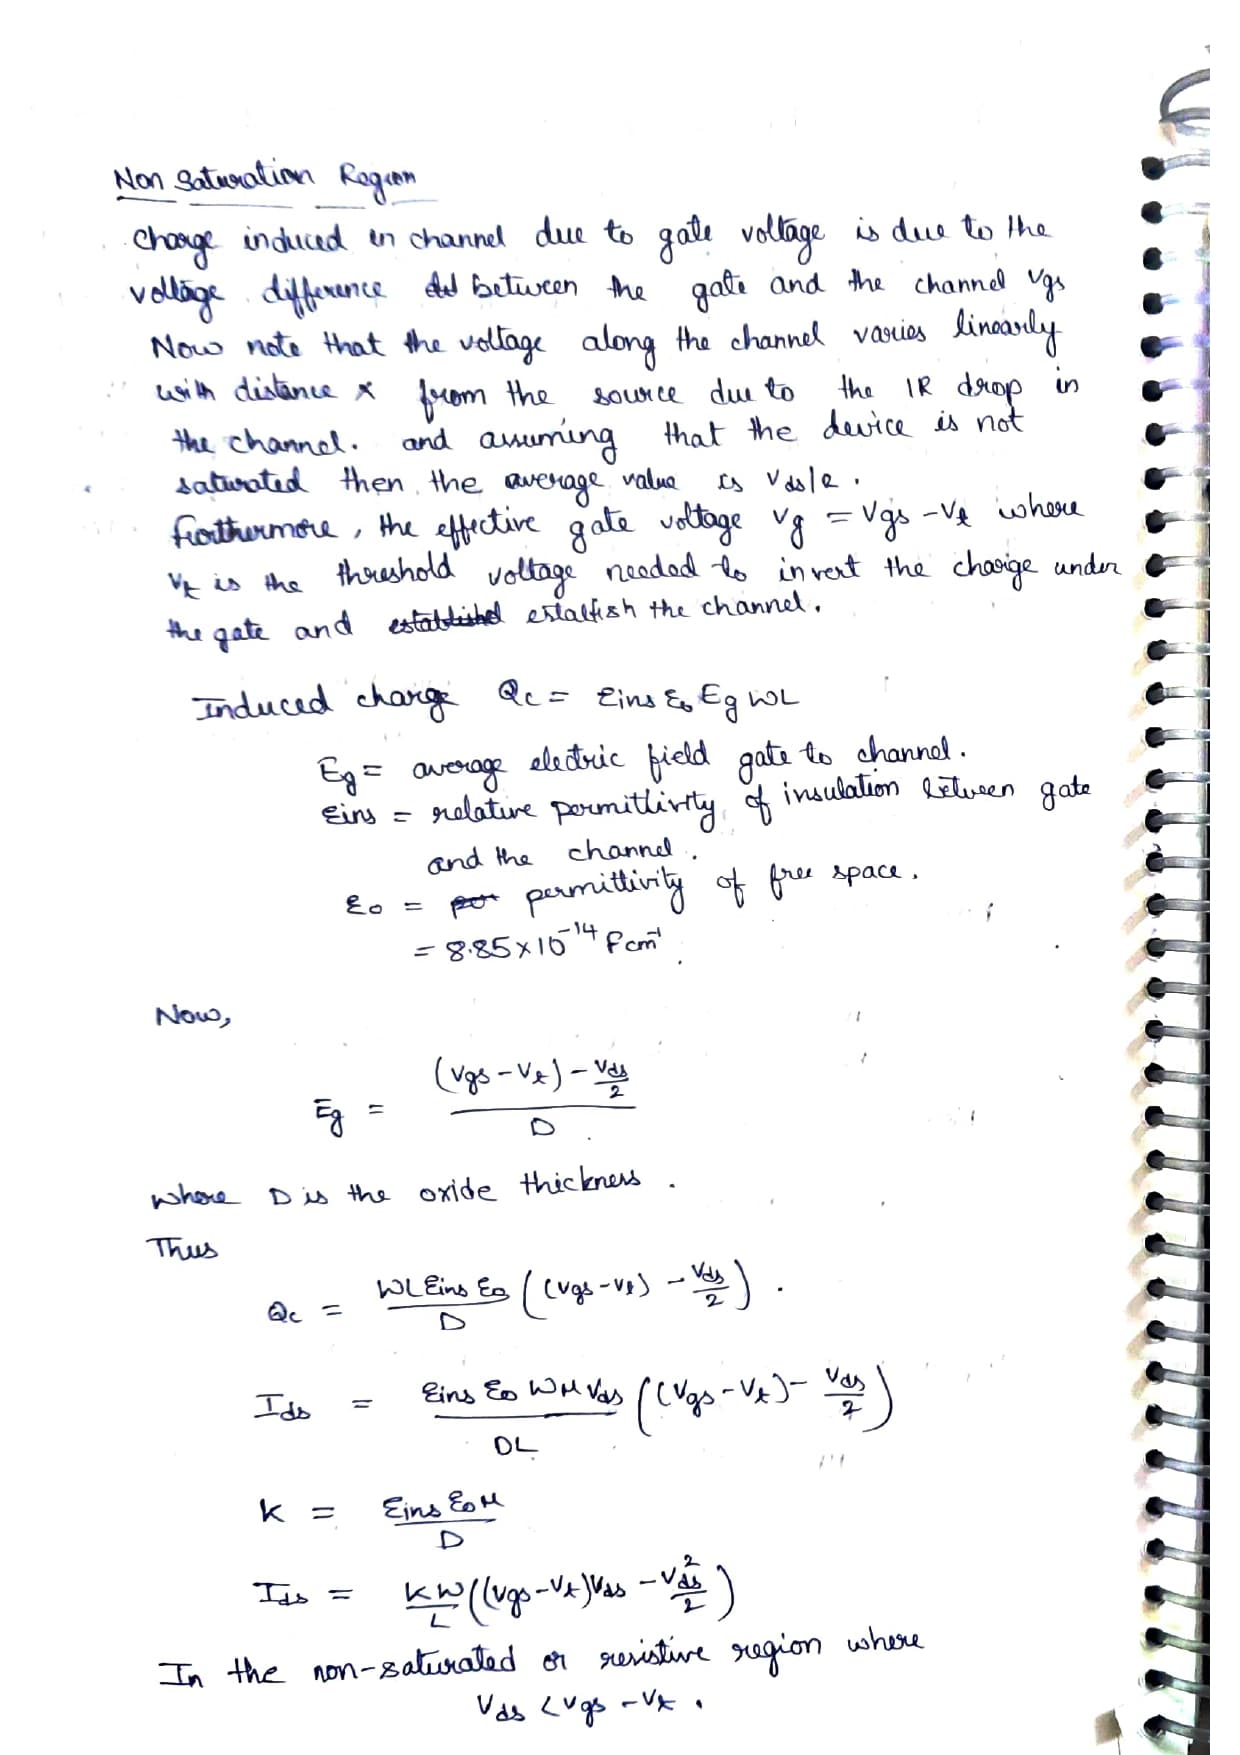 Non Saturation Region
Charge induced in channel due to gate voltage is due to the
voltage difference between the gate and the channel Vgs
Now note that the voltage along the channel varies linearly
with distance x from the source due to the IR drop in
the channel. and assuming that the device is not
saturated then the average value is Vds/2.
Furthermore, the effective gate voltage Vg = Vgs - Vt where
Vt is the threshold voltage needed to invert the charge under
the gate and established establish the channel.
Induced charge Qc = εins ε0 Eg WL
Eg = average electric field gate to channel.
εins = relative permittivity of insulation between gate
and the channel.
ε0 = per permittivity of free space.
= 8.85 × 10⁻¹⁴ Fcm⁻¹
Now,
Eg = ((Vgs - Vt) - Vds/2) / D
where D is the oxide thickness.
Thus
Qc = (WL εins ε0 / D) ((Vgs - Vt) - Vds/2).
Ids = (εins ε0 W μ Vds / DL) ((Vgs - Vt) - Vds/2)
K = εins ε0 μ / D
Ids = (KW / L) ((Vgs - Vt)Vds - Vds²/2)
In the non-saturated or resistive region where
Vds < Vgs - Vt.